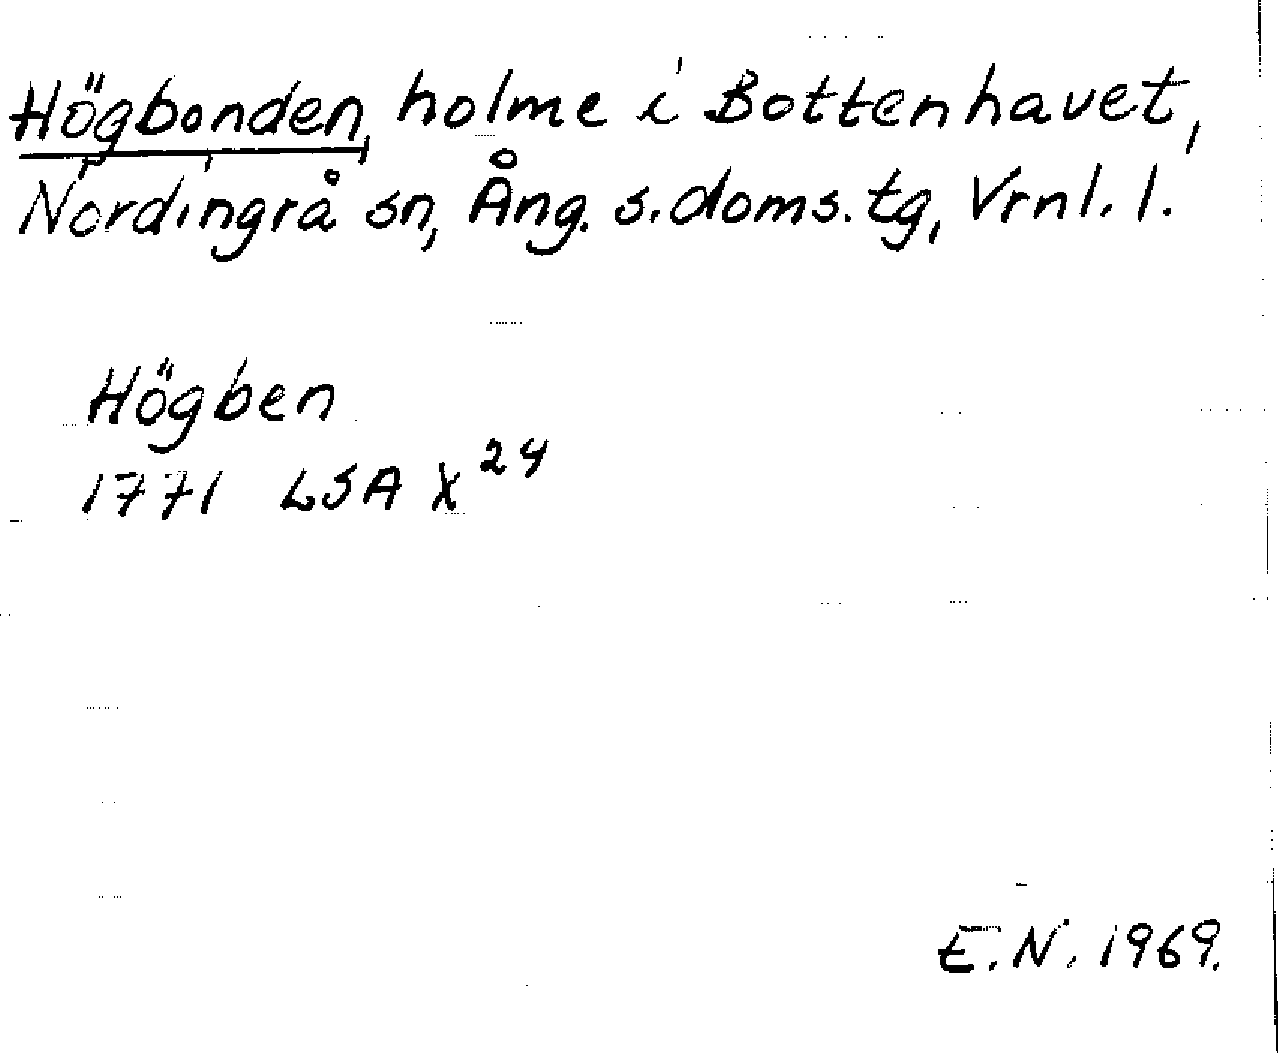 Högbonden, holme i Bottenhavet,
Nordingrå sn, Ång. s. doms. tg, Vrnl. l.
Högben
1771 LSA X 24
E.N. 1969.